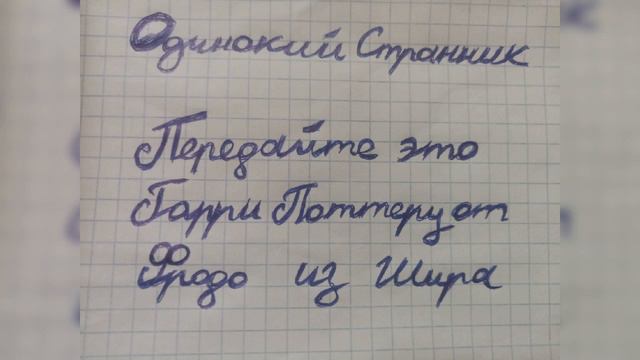 Одинокий Странник
Передайте это
Гарри Поттеру от
Фродо из Шира